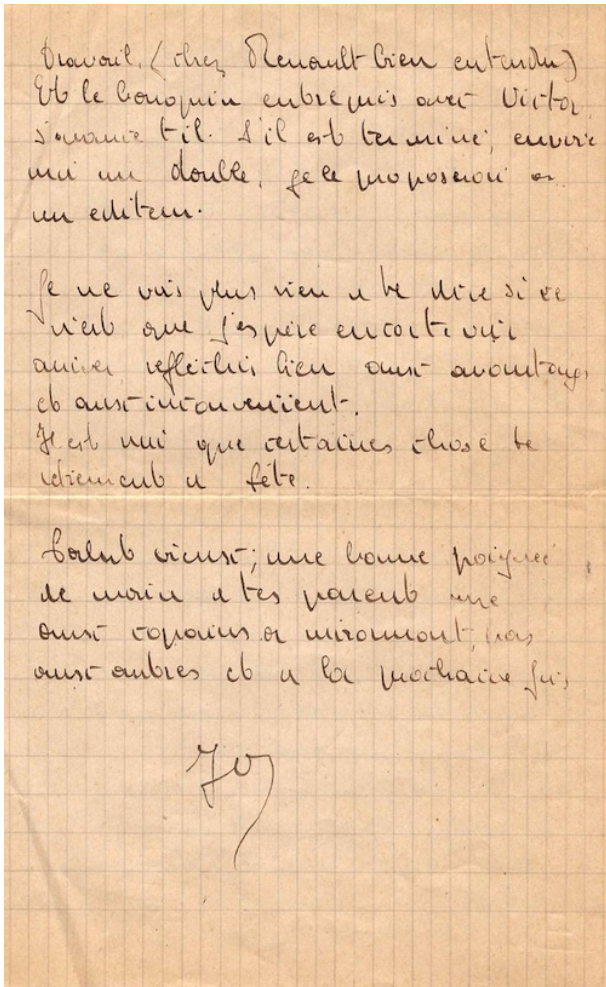 travail. (chez Renault bien entendu)
Et le bouquin entrepris avec Victor
s'avance t il. S'il est terminé, envoie
moi un double, je le proposerai a
un editeur.
Je ne vois plus rien a te dire si ce
n'est que j'espère encore te voir
arriver, reflechis bien aux avantages
et aux inconvenient.
Il est vrai que certaines chose te
retiennent a fête.
Salut vieux; une bonne poignée
de main a tes parent une
aux copains a miramont, pas
aux autres et a la prochaine fois
Jo